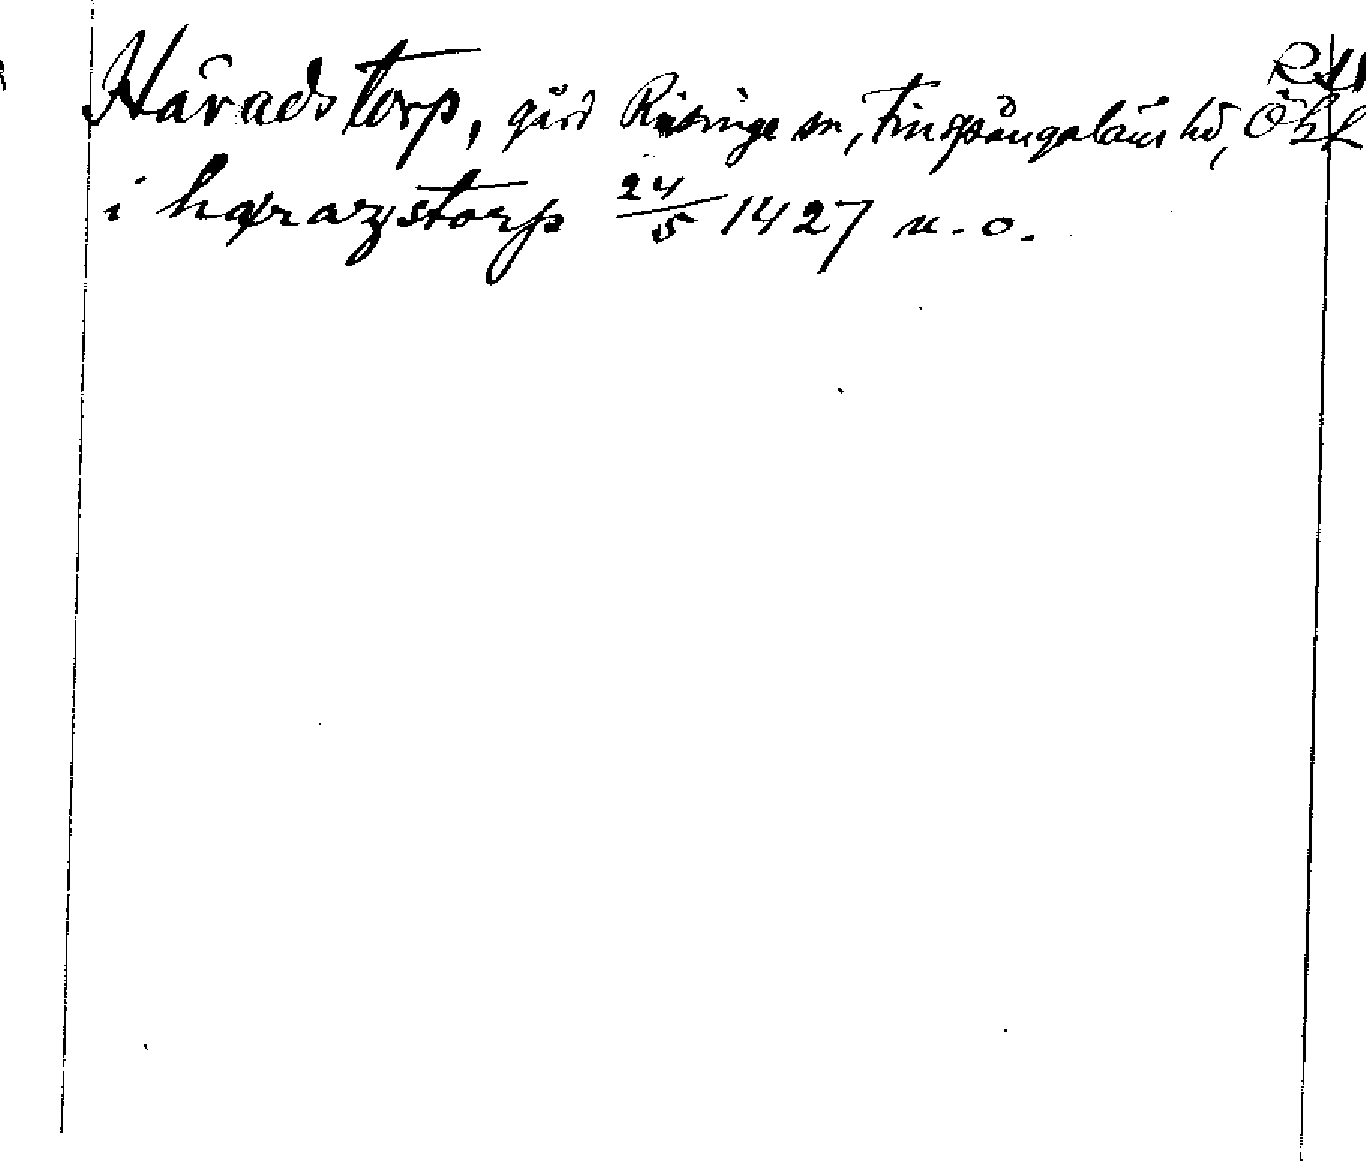 Häradstorp, gård Risinge sn, Finspångaläns hd, Ögl
i hærazstorp 24/5 1427 u. o.